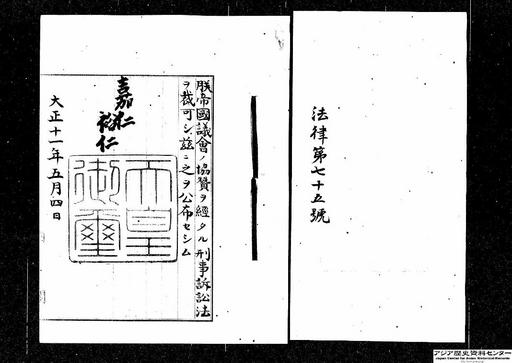 法律第七十五號
朕帝國議會ノ協贊ヲ經タル刑事訴訟法
ヲ裁可シ茲ニ之ヲ公布セシム
嘉仁
裕仁
天皇
御璽
大正十一年五月四日
アジア歴史資料センター
Japan Center for Asian Historical Records